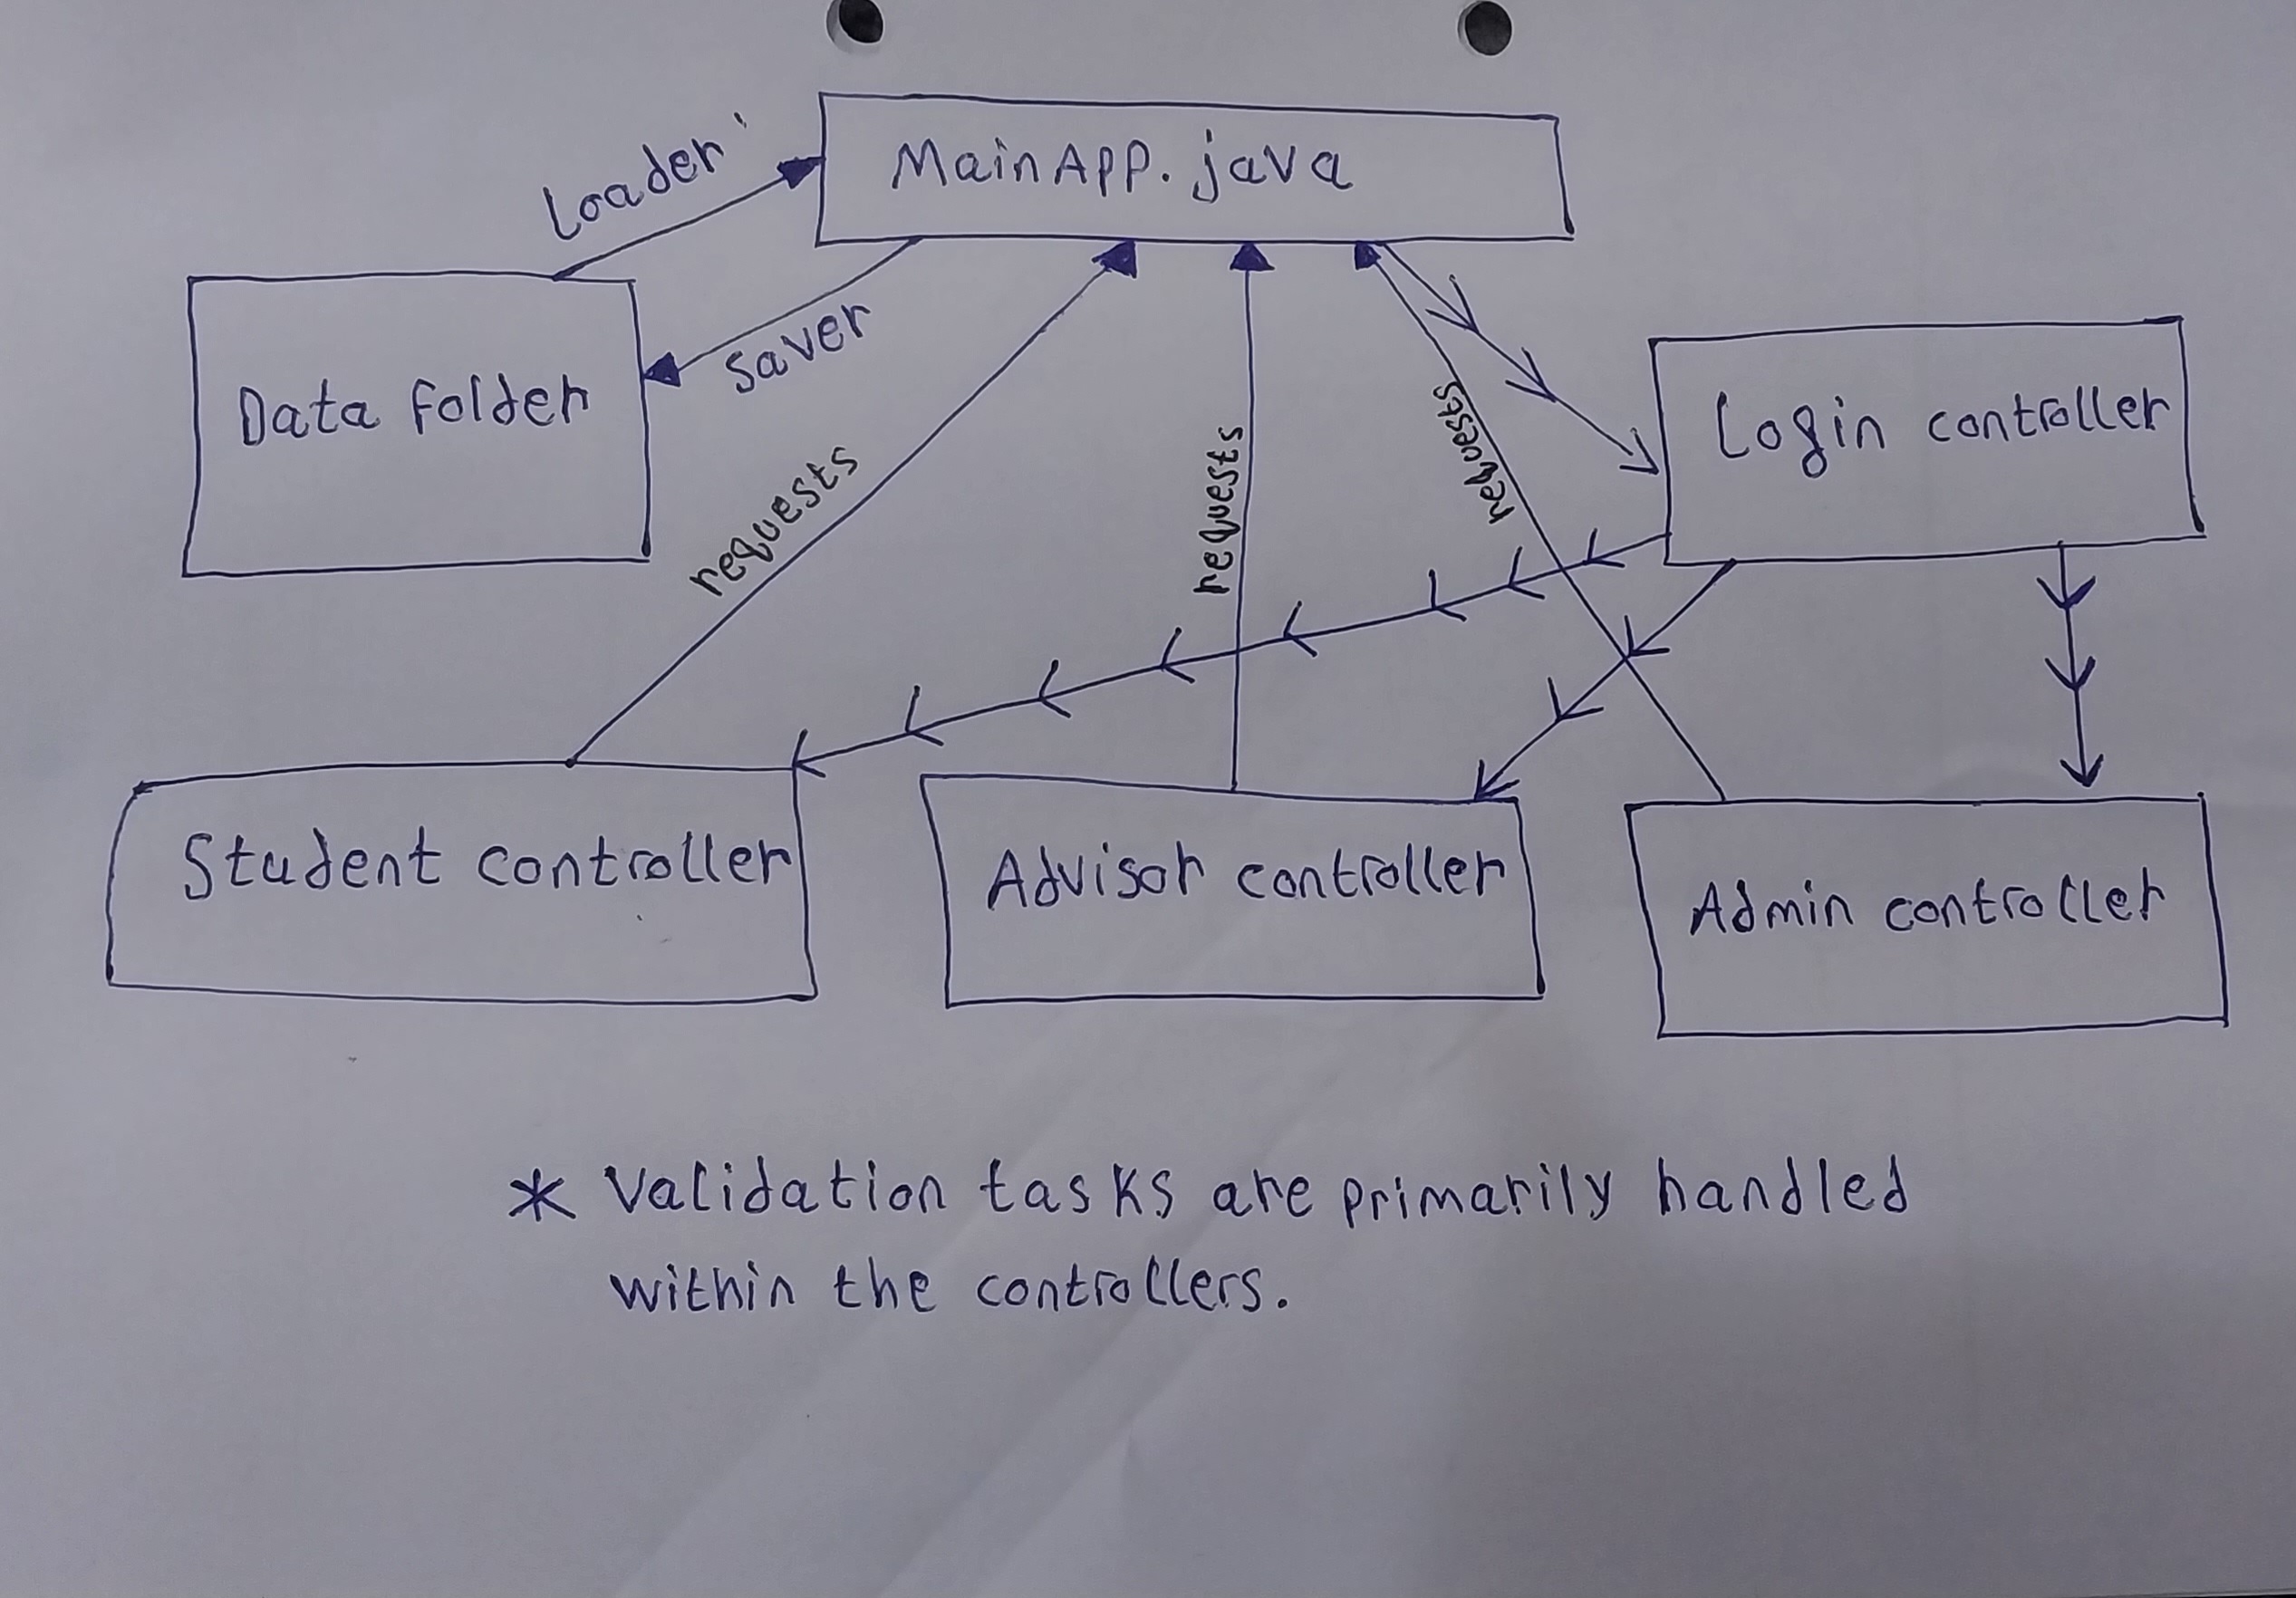 MainApp.java
Loader
saver
Data folder
Login controller
requests
requests
requests
Student controller
Advisor controller
Admin controller
* Validation tasks are primarily handled
within the controllers.